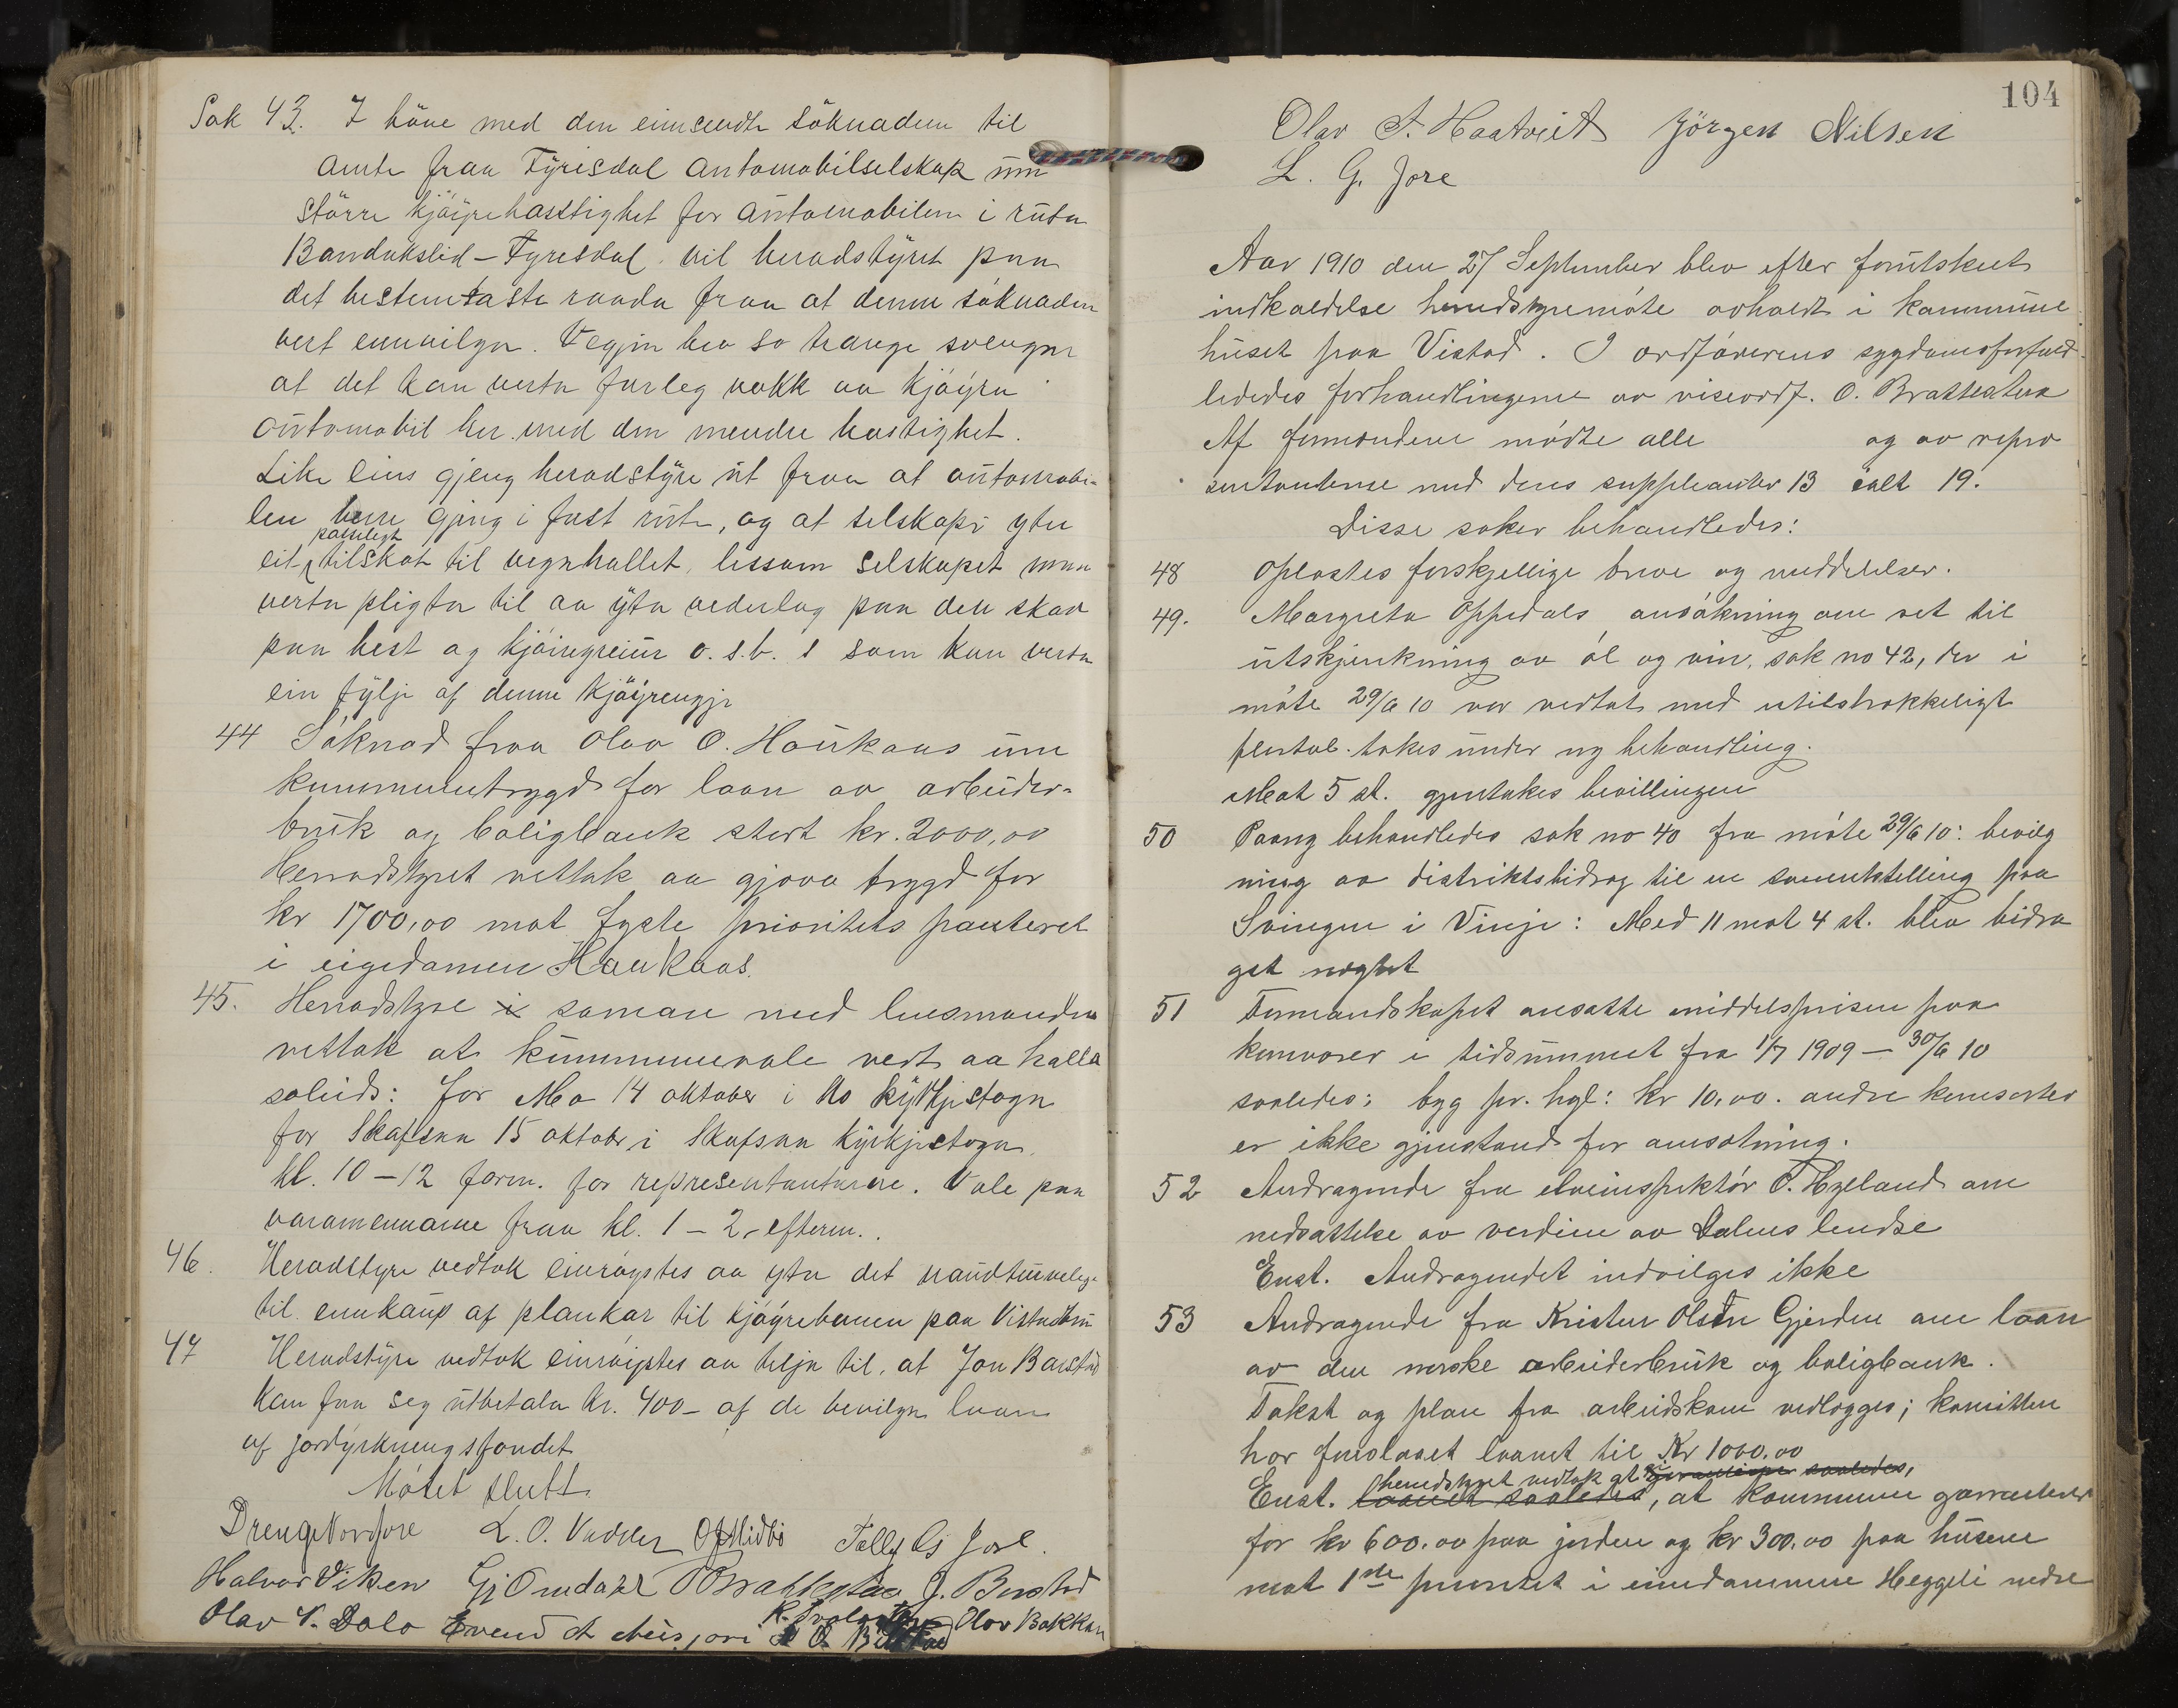 Sak 43. I höve med den einsendte söknaden til
amte fraa Fyrisdal automobilselskap um
större kjöyrehastighet for automobilen i ruta
Bandakslid – Fyresdal vil heradstyret paa
det bestemtaste raada fraa at denne söknaden
vert einvilga. Vegjin hev so trange svengar
at det kan verta farleg nokk aa kjöyra
automobil her med den mendre hastighet.
Like eins gjeng heradstyre ut fraa at automobi-
len bare gjeng i fast rute, og at selskapi yter
paalegt
eit tilskot til vegahallet, lessom selskapet maa
verta pligta til aa yta vederlag paa den skae
paa hest og kjöiregreiur o.s.b. som kan verta
ein fylje af denne kjöyrengje
44 Söknad fraa Olav O. Haukaas um
kommunetrygd for laan av arbeider-
bruk og boligbank stort kr. 2000,00
Herradstyret vettak aa gjeva trygd for
kr 1700,00 mot fyste prioritets panteret
i eigedomen Haukaas.
45. Herradstyre i saman med lensmanden
vettak at kummunevale vert aa halla
soleids: for Mo 14 oktober i Mo kyrkjestogn
for Skafsaa 15 oktobr i Skafsaa kyrkjestogn
kl. 10 – 12 form. for representantarne. Vale paa
varamennarne fraa kl. 1 – 2 efterm.
46. Heradstyre vedtok einröystes aa yta det naudtunelege
til einkaup af plankar til kjöyrebanen paa Vistadbru
47 Heradstyre vedtok einröystes aa telja til, at Jon Bustad
kan faa seg utbetala kr. 400 – af de bevilga laan
af jordyrkningsfondet
Mötet slutt
Drenge Norjore L. O. Vadder O. Midbö Tallef G. Jore.
Halvor Viken Gj Omdahl O Brattestaa J. Bustad
Olav V. Dalo Evend A K. Olav Bakkan
104
Olav A. Haatveit Jörgen Nilsen
L. G. Jore
Aar 1910 den 27 September blev efter forutskeet
indkaldelse heredstyremöte avholdt i kommune
huset paa Vistad. I ordförerens sygdomsforfald
lededes forhandlingerne av viseordf. O. Brattestaa
Af formændene mödte alle og av repræ
sentanterne med deres suppleanter 13 ialt 19.
Disse saker behandledes:
48 Oplæstes forskjellige breve og meddelelser.
49. Margreta Oppedals ansökning om ret til
utskjenkning av öl og vin, sak no 42, der i
möte 29/6 10 var vedtat med utilstrækkeligt
flertal. takes under ny behandling.
Mot 5 st. gjentakes bevillingen
50 Paany behandledes sak no 40 fra möte 29/6 10: bevilg
ning av distriktsbidrag til en sammkstelling paa
Svingen i Vinje: Med 11 mot 4 st. blev bidra
get nægtet
51 Formandskapet ansatte middelsprisen paa
kornvarer i tidsrummet fra 1/7 1909 – 30/6 10
saaledes: byg pr. hgl: kr 10,00. andre kornsorter
er ikke gjenstand for ansætning.
52 Andragende fra elveinspektör O. Hyeland om
nedsættelse av verdien av Dalens lendse
Enst. Andragendet indvilges ikke
53 Andragende fra Kristen Olsen Gjerden om laan
av den norske arbeiderbruk og boligbank.
Takst og plan fra arbeidskom vedlægges; komitteen
har foreslaaet laanet til kr 1000,00
heredstyret vedtok at garanticeper saaledes,
Enst. laanet saaledes, at kommunen garranterer
for kr 600,00 paa jorden og kr 300,00 paa husene
mot 1ste prioritet i eiendommene Heggeli nedre